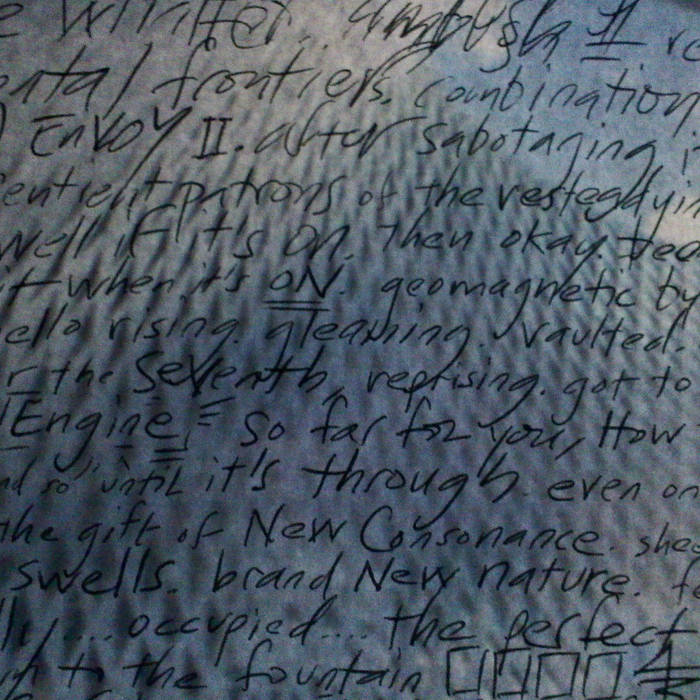 ental frontiers. combination
ENVOY II. after sabotaging
sentient patrons of the
well if it's on. then okay.
it when it's ON. geomagnetic
ello rising. gleaming. vaulted.
the Seventh, reprising. got to
Engine so far for you, How
nd so until it's through. even on
the gift of New Consonance. shee
swells. brand New nature. fe
occupied.... the perfect
to the fountain